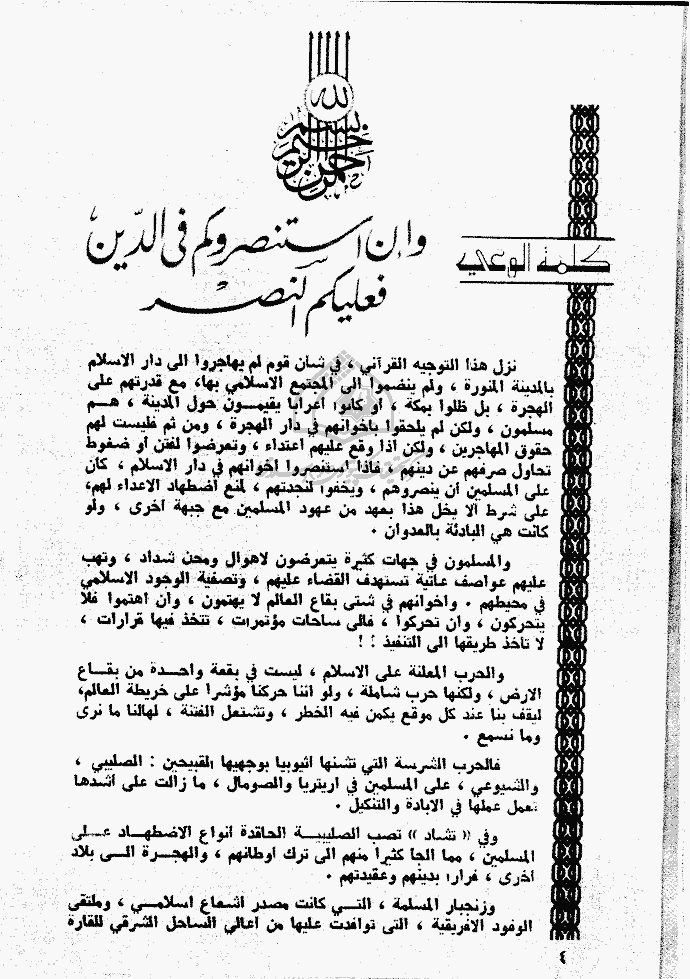 بسم الله الرحمن الرحيم
كلمة الوعي
وإن استنصروكم في الدّين
فعليكم النصر
نزل هذا التوجيه القرآني ، في شأن قوم لم يهاجروا الى دار الاسلام
بالمدينة المنورة ، ولم ينضموا الى المجتمع الاسلامي بها، مع قدرتهم على
الهجرة ، بل ظلوا بمكة ، أو كانوا أعرابا يقيمـــون حول المدينة ، هـــم
مسلمون ، ولكن لم يلحقوا باخوانهم في دار الهجرة ، ومن ثم فليست لهم
حقوق المهاجرين ، ولكن اذا وقع عليهم اعتداء ، وتعرضوا لفتن أو ضغوط
تحاول صرفهم عن دينهم ، فاذا استنصروا اخوانهم في دار الاسلام ، كان
على المسلمين أن ينصروهم ، ويخفوا لنجدتهم ، لمنع اضطهاد الاعداء لهم،
على شرط ألا يخل هذا بعهد من عهود المسلمين مع جبهة أخرى ، ولو
كانت هي البادئة بالعدوان .
والمسلمون في جهات كثيرة يتعرضون لاهوال ومحن شداد ، وتهب
عليهم عواصف عاتية تستهدف القضاء عليهم ، وتصفية الوجود الاسلامي
في محيطهم . واخوانهم في شتى بقاع العالم لا يهتمون ، وان اهتموا فلا
يتحركون ، وان تحركوا ، فالى ساحات مؤتمرات ، تتخذ فيها قرارات ،
لا تأخذ طريقها الى التنفيذ ! !
والحرب المعلنة على الاسلام ، ليست في بقعة واحــدة من بقــاع
الارض ، ولكنها حرب شاملة ، ولو اننا حركنا مؤشرا على خريطة العالم،
ليقف بنا عند كل موقع يكمن فيه الخطر ، وتشتعل الفتنة ، لهالنا ما نرى
وما نسمع .
فالحرب الشرسة التي تشنها اثيوبيا بوجهيها القبيحين : الصليبي ،
والشيوعي ، على المسلمين في اريتريا والصومال ، ما زالت على أشدها
تعمل عملها في الابادة والتنكيل .
وفي (( تشاد )) تصب الصليبيـــة الحاقدة أنواع الاضطهــاد عـــلى
المسلمين ، مما ألجأ كثيرا منهم الى ترك أوطانهم ، والهجــرة الـــى بلاد
أخرى ، فرارا بدينهم وعقيدتهم .
وزنجبار المسلمة ، التـــي كانت مصدر اشعاع اسلامـــي ، وملتقى
الوفود الافريقية ، التى توافدت عليها من أعالي الساحل الشرقي للقارة
٤